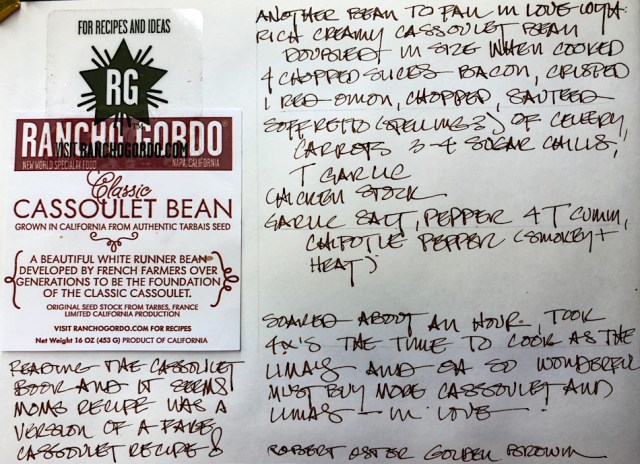 FOR RECIPES AND IDEAS
RG
RANCHO GORDO
VISIT RANCHOGORDO.COM
NEW WORLD SPECIALTY FOOD NAPA, CALIFORNIA
Classic
CASSOULET BEAN
GROWN IN CALIFORNIA FROM AUTHENTIC TARBAIS SEED
A BEAUTIFUL WHITE RUNNER BEAN
DEVELOPED BY FRENCH FARMERS OVER
GENERATIONS TO BE THE FOUNDATION
OF THE CLASSIC CASSOULET.
ORIGINAL SEED STOCK FROM TARBES, FRANCE
LIMITED CALIFORNIA PRODUCTION
VISIT RANCHOGORDO.COM FOR RECIPES
Net Weight 16 OZ (453 G) PRODUCT OF CALIFORNIA
READING THE CASSOULET
BOOK AND IT SEEMS
MOMS RECIPE WAS A
VERSION OF A FAKE
CASSOULET RECIPE
ANOTHER BEAN TO FALL IN LOVE WITH:
RICH CREAMY CASSOULET BEAN
DOUBLED IN SIZE WHEN COOKED
4 CHOPPED SLICES BACON, CRISPED
1 RED ONION, CHOPPED, SAUTEED
SOFFRETTO (SPELLING?) OF CELERY,
CARROTS 3-4 SUGAR CHILLS,
T GARLIC
CHICKEN STOCK
GARLIC SALT, PEPPER 4 T CUMIN,
CHIPOTLE PEPPER (SMOKEY +
HEAT)
SOAKED ABOUT AN HOUR, TOOK
4X'S THE TIME TO COOK AS THE
LIMA'S AND OH SO WONDERFUL
MUST BUY MORE CASSSOULET AND
LIMAS - IN LOVE
ROBERT OSTER GOLDEN BROWN